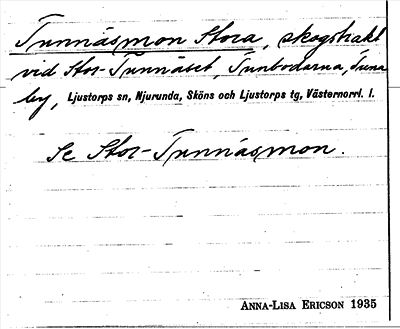 Tunnåsmon Stora, skogstrakt
vid Stor-Tunnåset, Tunbodarna, Tuna
by, Ljustorps sn, Njurunda, Sköns och Ljustorps tg, Västernorrl. l.
Se Stor-Tunnåsmon.
ANNA-LISA ERICSON 1935